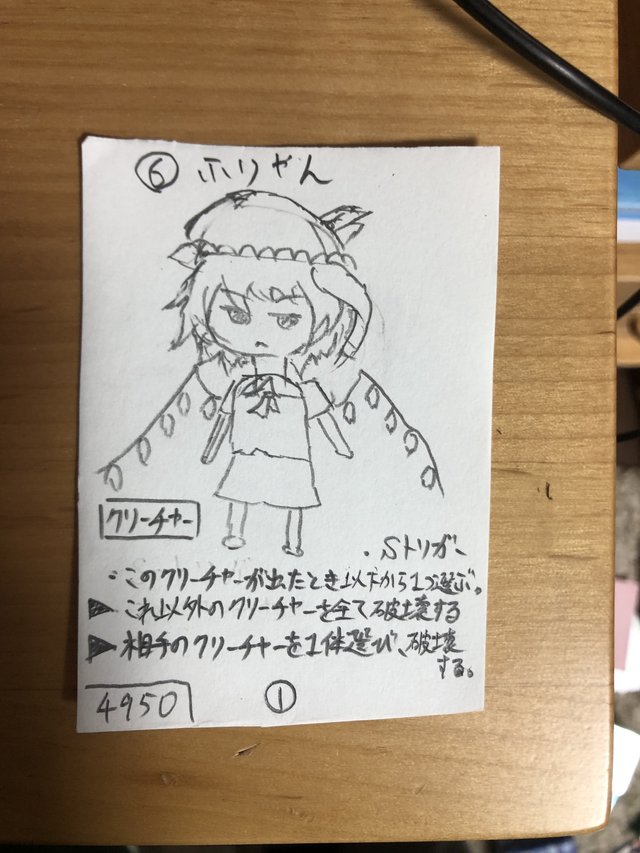 ⑥ ふりゃん
クリーチャー
・Sトリガー
・このクリーチャーが出たとき以下から1つ選ぶ。
▶これ以外のクリーチャーを全て破壊する
▶相手のクリーチャーを1体選び、破壊
する。
4950
①